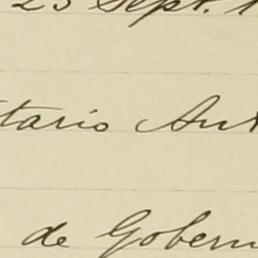 25 Sept. 1
tario Ant
de Gobern